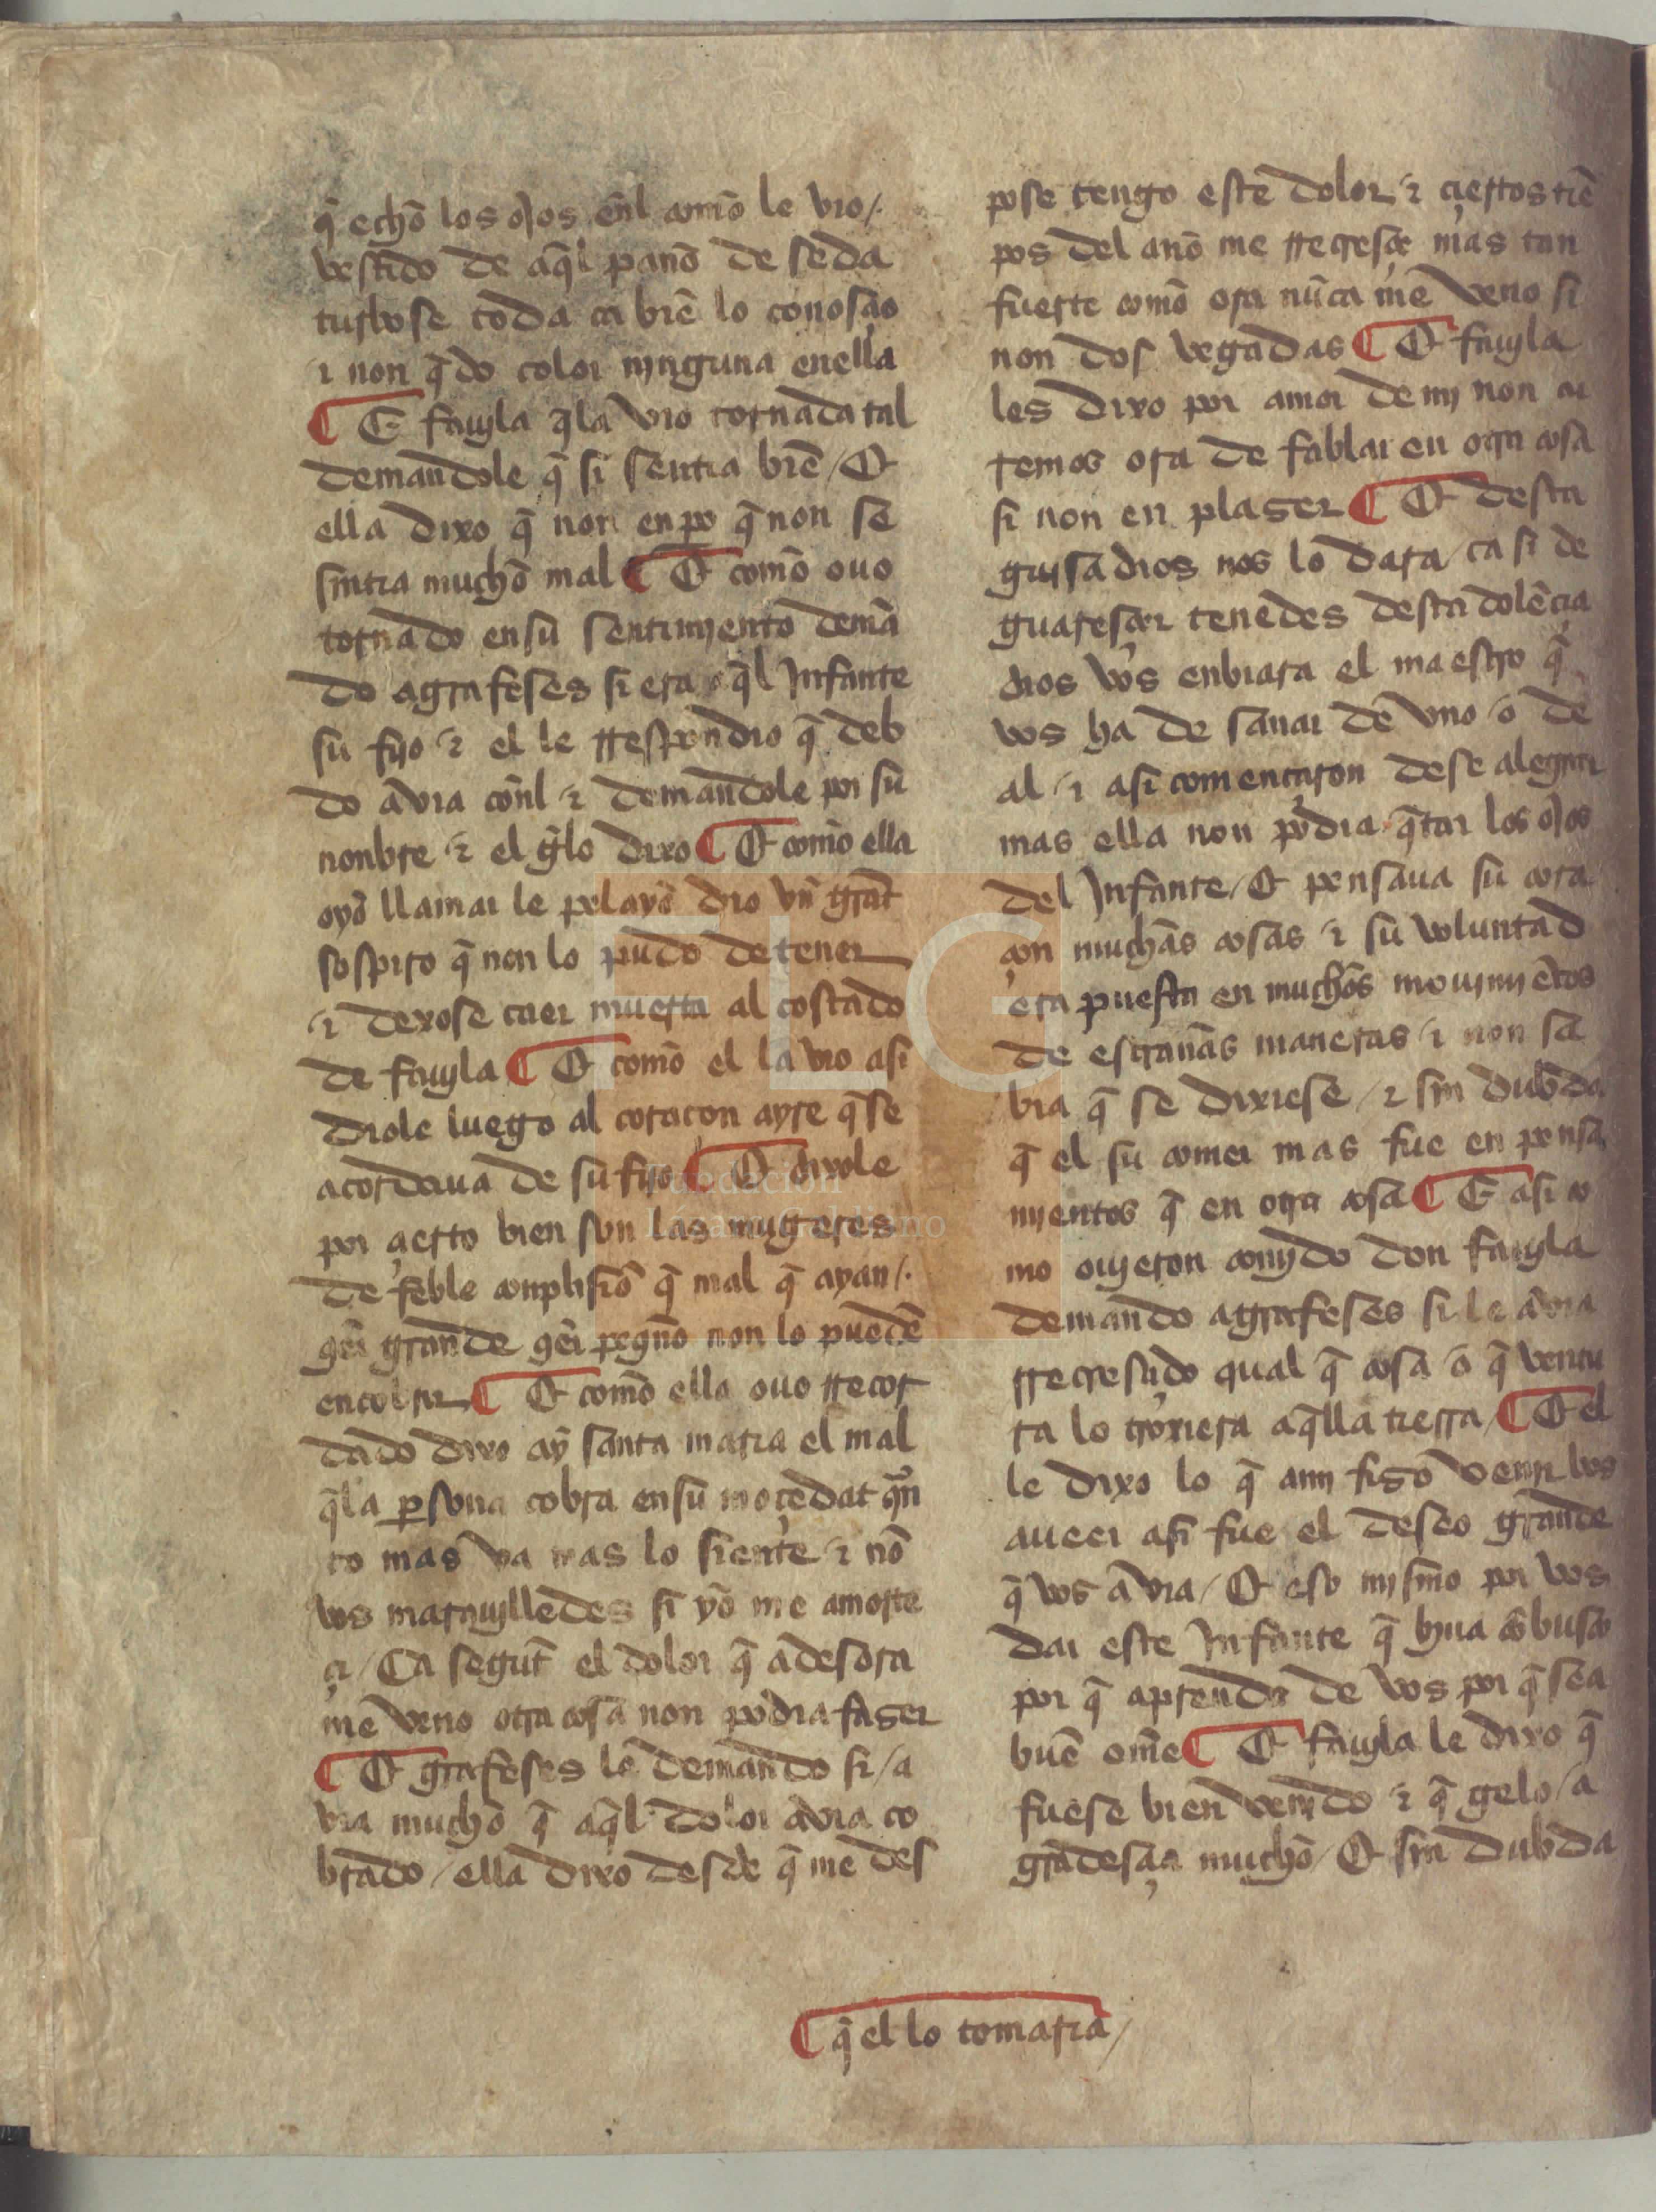 q̃ echõ los ojos en̄l comõ le vio/.
vestido de aq̃l panõ de seda
turbose toda ca biẽ lo conosçio
⁊ non q̃do color njnguna enella
¶ E fauyla q̃la vio tornada tal
demandole q̃ si sentia biẽ / E
ella dixo q̃ non enpo q̃ non se
sintia muchõ mal ¶ E comõ ouo
tornado en su sentimjento demã
do a grafeses si era aq̃l Infante
su fijo ⁊ el le rrespondio q̃ deb
do avia con̄l ⁊ demandole por su
nonbre ⁊ el gelo dixo ¶ E comõ ella
oyõ llamar le pelayõ dio vñ grãt
sospiro q̃ non lo pudo detener
⁊ dexose caer muerta al costado
de fauyla ¶ E comõ el la vio asi
diole luego al coraçon ayre q̃ se
acordaua de su fijo ¶ E dixole
por çierto bien son las mugeres
de feble conplisiõ q̃ mal q̃ ayan/.
qer grande qer peqno non lo puedẽ
encobrir ¶ E comõ ella ouo rrecor
dado dixo ay santa maria el mal
q̃la ꝑsona cobra en su moçedat qn
to mas va mas lo siente ⁊ nõ
vos marauylledes si yõ me amorte
çi / Ca segut̃ el dolor q̃ adesora
me veno otra cosa non podria faser
¶ E grafeses le demando si / a
via muchõ q̃ aq̃l dolor avia co
brado / ella dixo desde q̃ me des
pose tengo este dolor ⁊ çiertos tiẽ
pos del anõ me rrecresçe mas tan
fuerte comõ ora nũca me veno si
non dos vegadas ¶ E fauyla
les dixo por amor de mj non cu
remos ora de fablar en otra cosa
si non en plaser ¶ E desta
guisa dios nos lo dara / ca si de
guaresçer tenedes desta dolẽçia
dios vos enbiara el maestro q̃
vos ha de sanar de vno o de
al ⁊ asi començaron de se alegrar
mas ella non podia q̃tar los ojos
del Infante / E pensaua su cora
çon muchãs cosas ⁊ su voluntad
era puesta en muchõs moujmjẽtos
de estranãs maneras ⁊ non sa
bia q̃ se dixiese / ⁊ sin dubda
q̃ el su comer mas fue en pensa
mjentos q̃ en otra cosa ¶ E asi co
mo oujeron comjdo don fauyla
demando a grafeses si le avia
rrecresçido qual q̃ cosa o q̃ ventu
ra lo troxiera aq̃lla tierra / ¶ E el
le dixo lo q̃ amj fisõ venir vos
aueer asi fue el deseo grande
q̃ vos avia / E eso mjsmo por vos
dar este Infante q̃ hua a buscar
por q̃ aprenda de vos por q̃ sea
buẽ ome ¶ E fauyla le dixo q̃
fuese bien venjdo ⁊ q̃ gelo / a
gradesçia muchõ / E sin dubda
¶ q̃ el lo tomaria /
FLG
Fundación
Lázaro Galdiano